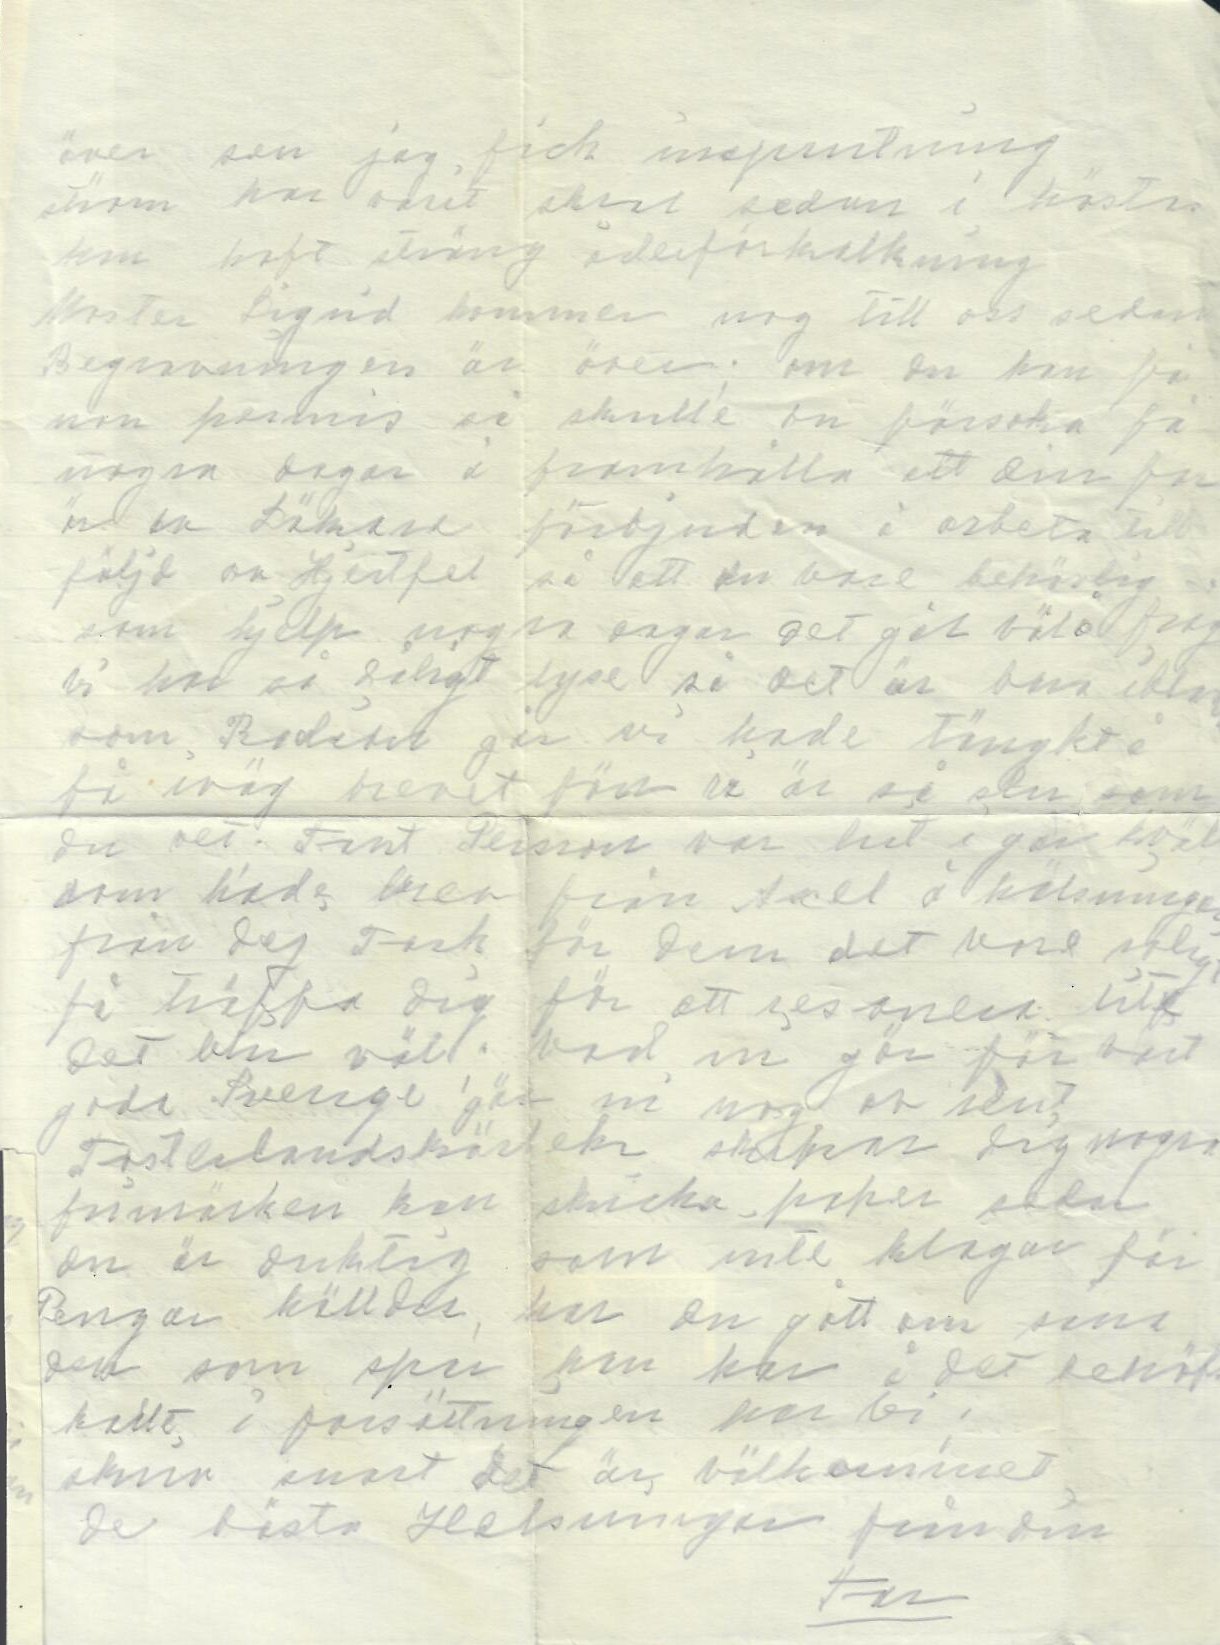 över sen jag fick insprutning
ström har varit sedan i höstas
han haft sträng åderförkalkning
Moster Sigrid kommer nog till oss sedan
Begravningen är över; om du kan få
non permis så skulle du försöka få
nogra dagar å framhålla att din far
är av Läkare förbjuden å arbeta till
följd av Hjertfel så att du vore behövlig
som hjelp nogra dagar det går väl å fråga
vi har så dåligt lyse så det är bara ibland
som Radion går vi hade tängkt å
få iväg brevet förr vi är så sen som
du vet. Fant Person var hit i går kväll
som hade brev från Axel å hälsningar
från dej Tack för dem det vore roligt
få träffa dig för att resonera lite
det blir väl. vad ni gör för vårt
goda Sverige gör ni nog av rent
Fosterlandskärlek skickar dig nogra
frimärken kan skicka papper sedan
du är duktig som inte klagar för
Pengar håller, har du gott om sona
den som spar han har å det behövs
kallt, i forsättningen har vi,
skriv snart det är välkommet
de bästa Helsningar från din
Far